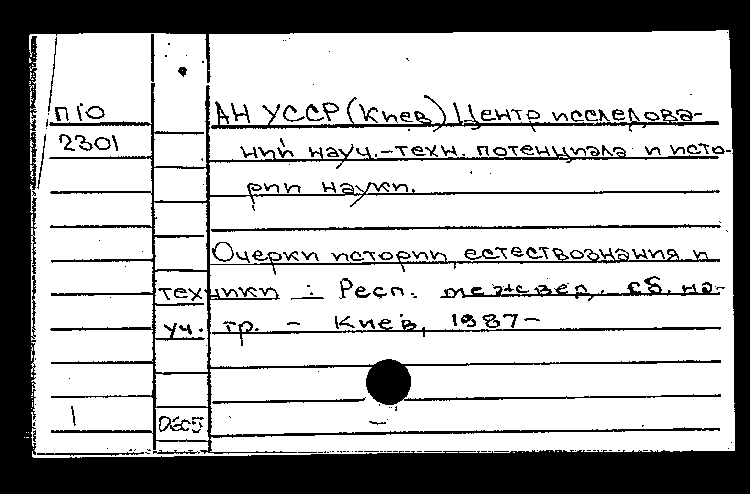 П10
2301
АН УССР (Киев) Центр исследова-
ний науч.-техн. потенциала и исто-
рии науки.
Очерки истории естествознания и
техники : Респ. межвед. сб. на-
уч. тр. - Киев, 1987-
1